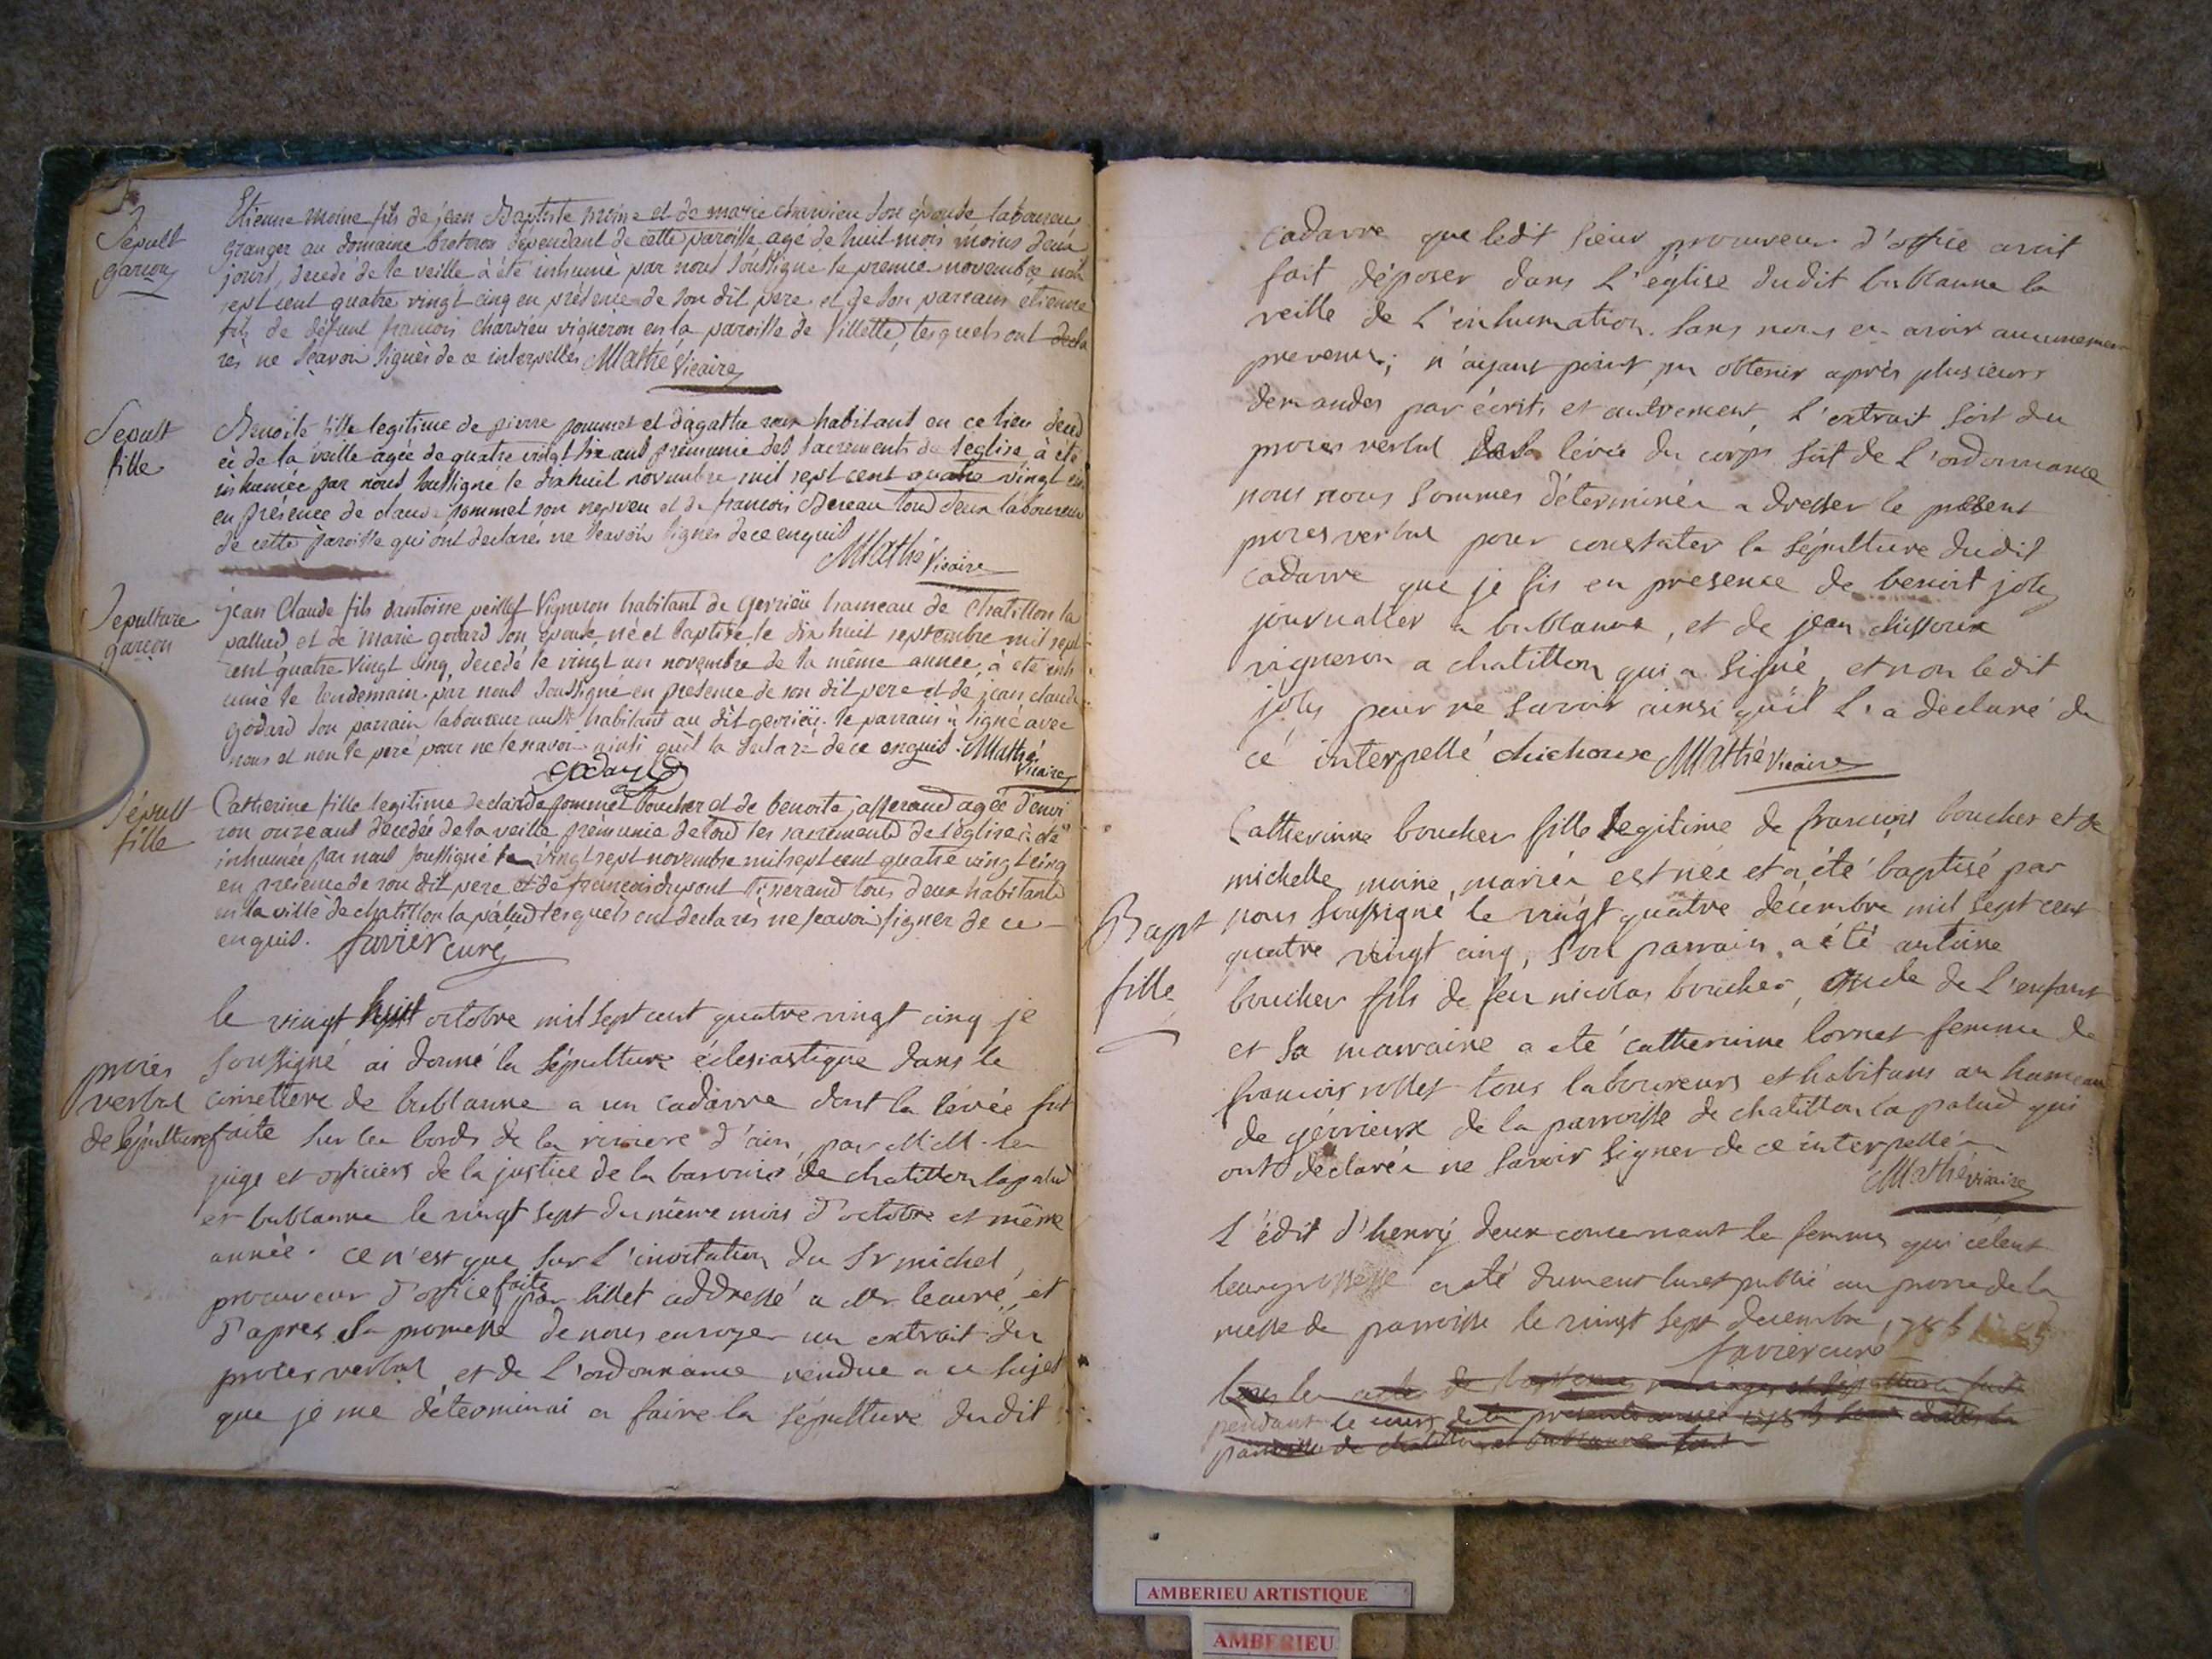 Sepult
garçon
Etienne moine fils de jean Baptiste moine et de marie charvieu son épouse laboureur
granger au domaine dépendant de cette paroisse agé de huit mois moins deux
jours, decedé de la veille à été inhumé par nous soussigné le premier novembre mil
sept cent quatre vingt cinq en présence de son dit pere et de son parrain etienne
fils de défunt francois charvieu vigneron en la paroisse de villette, lesquels ont decla
rés ne sçavoir signér de ce interpellés Mathé Vicaire
Sepult
fille
Benoite fille legitime de pierre pommet et d'agathe roux habitant en ce lieu deced
éé de la veille agée de quatre vingt six ans prémunie des sacrements de l'eglise à été
inhumée par nous soussigné le dix huit novembre mil sept cent quatre vingt cinq
en présence de claude pommet son nepveu et de francois Bereau tous deux laboureurs
de cette paroisse qui ont declarés ne sçavoir signer de ce enquis
Mathé Vicaire
Sepulture
garçon
jean Claude fils d'antoine peillet vigneron habitant de gevrieu hameau de Chatillon la
pallud et de marie godard son épouse né et baptisé le dix huit septembre mil sept
cent quatre vingt cinq, decedé le vingt un novembre de la même année, à été inh
umé le lendemain par nous soussigné en présence de son dit pere et de jean claude
godard son parrain laboureur aussi habitant au dit gevrieu. le parrain à signé avec
nous et non le peré pour ne le sçavoir ainsi qu'il la declaré de ce enquis. Mathé
Vicaire
godard
Sépult
fille
Catherine fille legitime de claude pommet boucher et de benoite jasserand agée d'envi
ron onze ans decedée de la veille prémunie de tous les sacrements de l'église à été
inhumée par nous soussigné le vingt sept novembre mil sept cent quatre vingt cinq
en presence de son dit pere et de francois dupont tisserand tous deux habitants
en la ville de chatillon la palud lesquels ont declarés ne sçavoir signer de ce
enquis. favier curé
procès
verbal
de sépulture
le vingt huit octobre mil sept cent quatre vingt cinq je
soussigné ai donné la sépulture éclesiastique dans le
cimettere de bublanne a un cadavre dont la levée fut
faite sur les bords de la riviere d'ain, par M.M. les
juge et officiers de la justice de la baronie de chatillon la palud
et bublanne le vingt sept du même mois d'octobre et même
année. ce n'est que sur l'invitation du Sr michel
procureur d'office faite par billet addressé a Mr le curé, et
d'apres sa promesse de nous envoyer un extrait du
proces verbal et de l'ordonnance rendue a ce sujet
que je me déterminai a faire la sépulture dudit
cadavre que ledit sieur procureur d'office avait
fait déposer dans l'église dudit bublanne la
veille de l'inhumation. sans nous en avoir aucunement
prevenus; n'ayant point pu obtenir après plusieurs
demandes par écrits et autrement, l'extrait soit du
proces verbal de la levée du corps soit de l'ordonnance
nous nous sommes déterminés a dresser le present
proces verbal pour constater la sépulture dudit
cadavre que je fis en presence de benoit joly
journallier a bublanne, et de jean chissoux
vigneron a chatillon qui a signé, et non le dit
joly pour ne savoir ainsi qu'il l'a declaré de
ce interpellé chichoux Mathé Vicaire
Bapt
fille
Catherinne boucher fille legitime de françois boucher et de
michelle moine, mariés est née et a été baptisé par
nous soussigné le vingt quatre décembre mil sept cent
quatre vingt cinq, son parrain a été antoine
boucher fils de feu nicolas boucher, oncle de l'enfant
et sa marraine a été catherinne cornet femme de
francois rollet tous laboureurs et habitans au hameau
de gévrieux de la parroisse de chatillon la palud qui
ont declarés ne savoir signer de ce interpellés
Mathé vicaire
L'édit d'henry deux concernant les femmes qui célent
leur grossesse a été dument lu et publié au prone de la
messe de parroisse le vingt sept decembre, 1785
favier curé
tous les actes de baptemes mariages et sépultures faits
pendant le cours de la presente année 1785 dans la
parroisse de chatillon et bublanne sont
AMBERIEU ARTISTIQUE
AMBERIEU